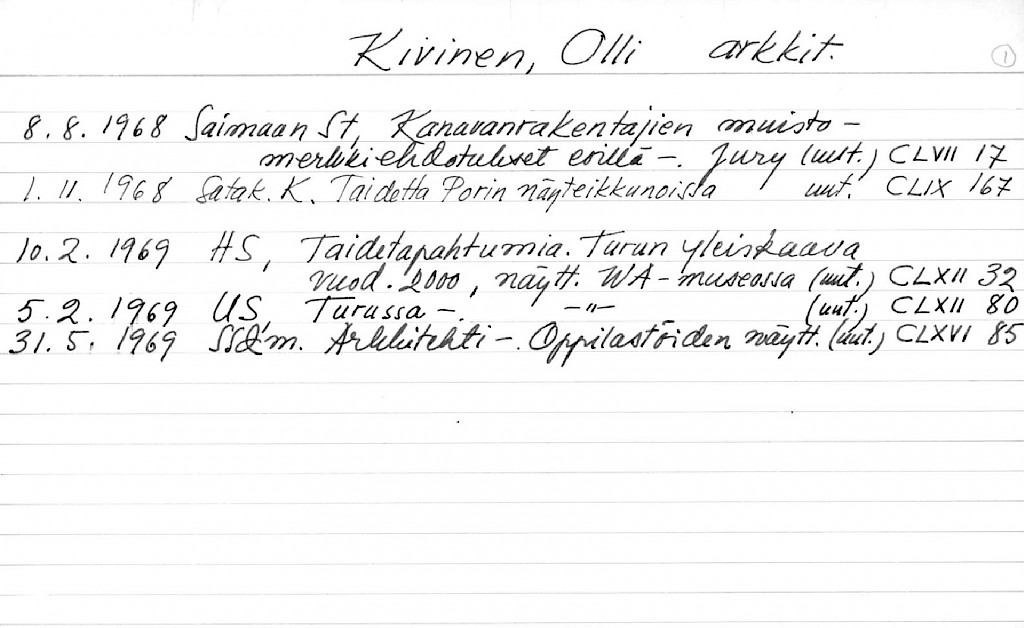 Kivinen, Olli arkkit. 1
8.8. 1968 Saimaan St, Kanavanrakentajien muisto-
merkkiehdotukset esillä -. Jury (uut.) CLVII 17
1. 11. 1968 Satak. K. Taidetta Porin näyteikkunoissa uut. CLIX 167
10. 2. 1969 HS, Taidetapahtumia. Turun yleiskaava
vuod. 2000, näytt. WA-museossa (uut.) CLXII 32
5. 2. 1969 US, Turussa -. -"- (uut.) CLXII 80
31. 5. 1969 Arkkitehti -. Oppilastöiden näytt. (uut.) CLXVI 85